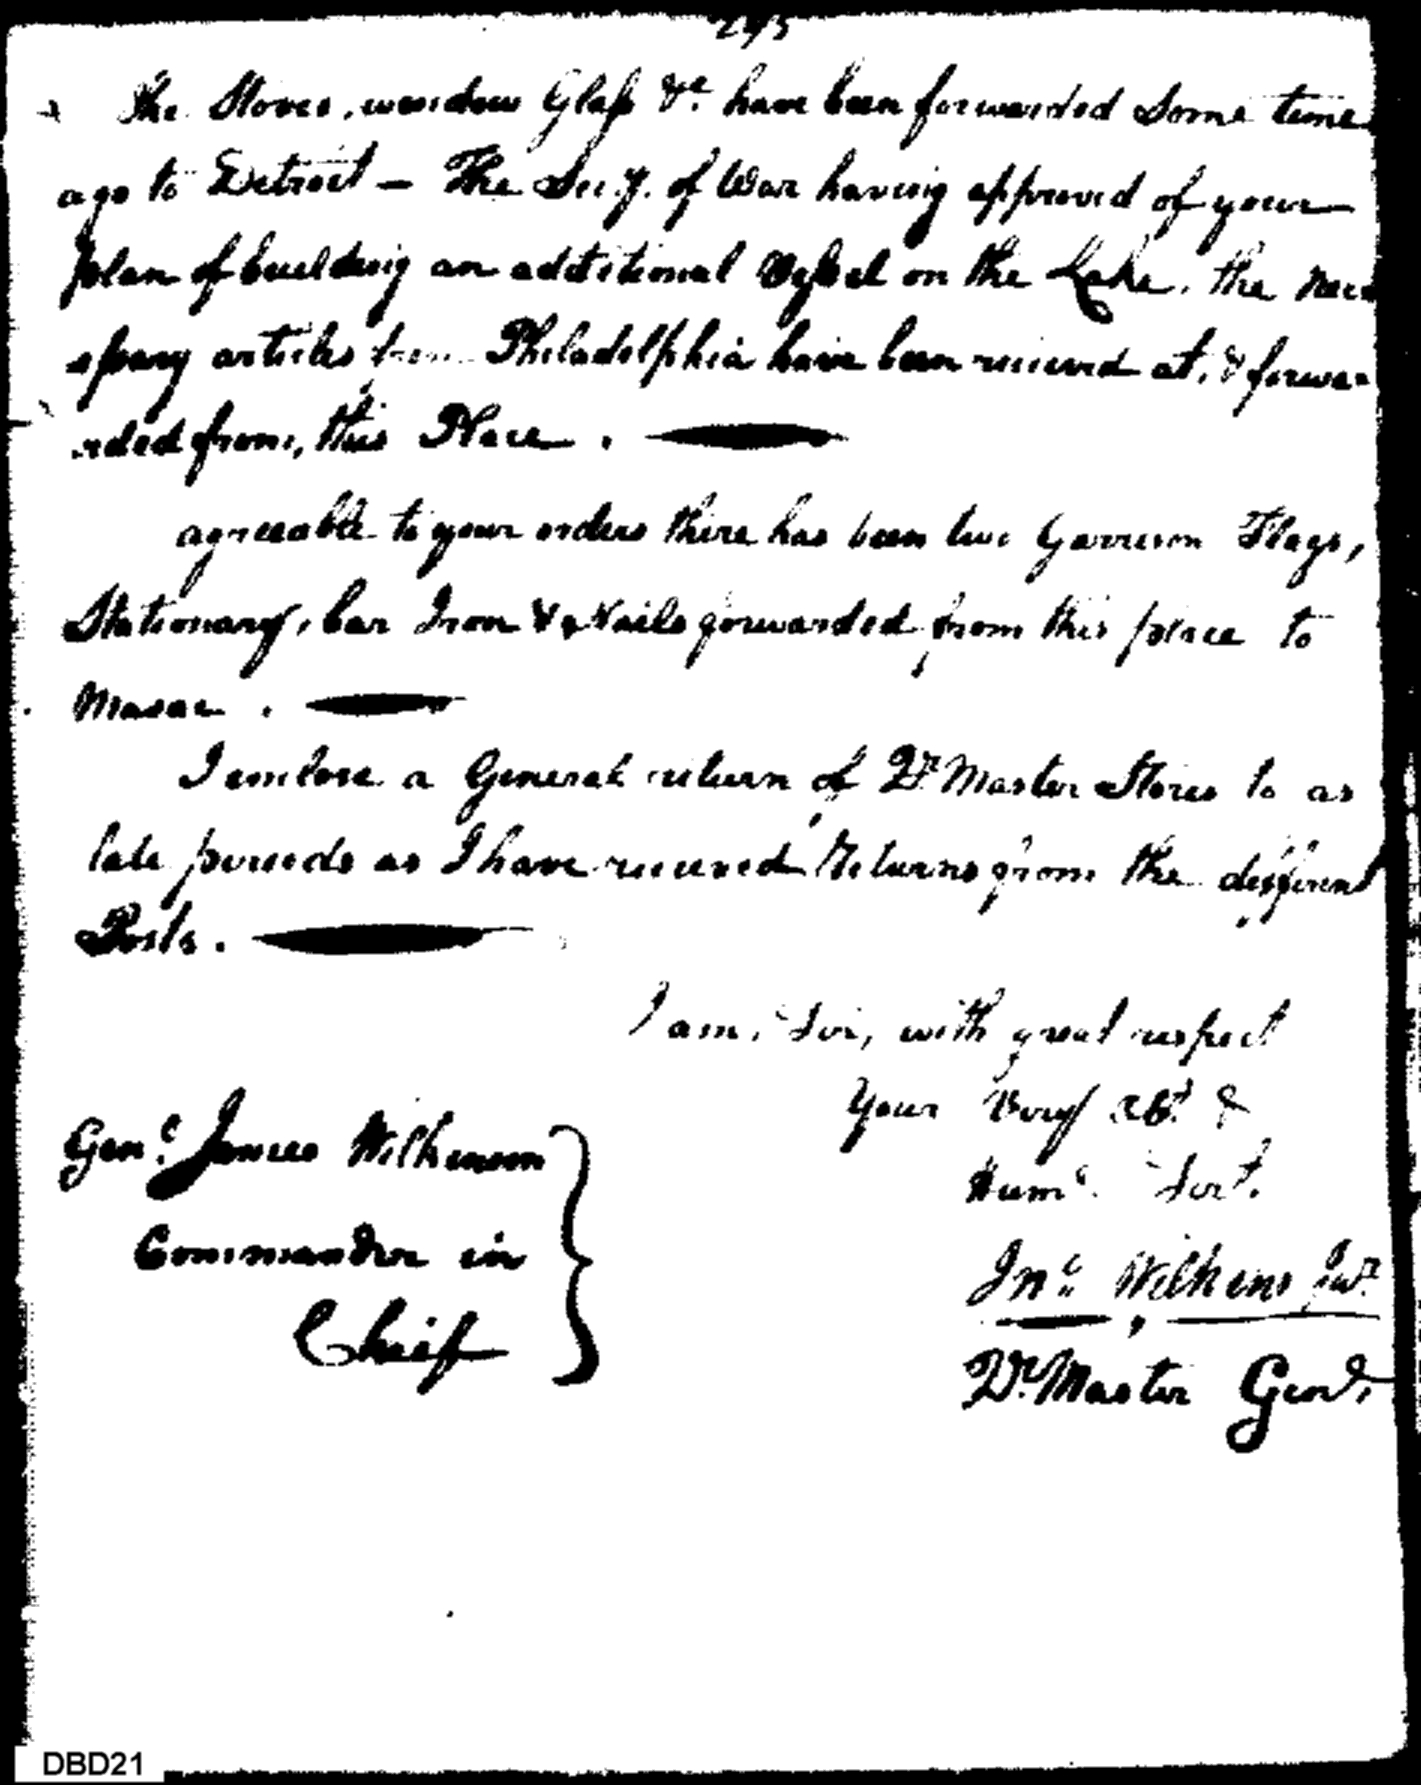 The Stoves, window Glass &c. have been forwarded Some time
ago to Detroit – The Secy. of War having approved of your
plan of building an additional Vessel on the Lake, the nece
ssary articles from Philadelphia have been received at, & forwa-
rded from, this Place.
agreeable to your orders there has been two Garrison Flags,
Stationary, bar Iron & Nails forwarded from this place to
Masac.
I enclose a General return of Qr. Master Stores to as
late periods as I have received Returns from the different
Posts.
I am, Sir, with great respect
Your Very Obt. &
Humle. Servt.
Genl. James Wilkinson
Commander in
Chief
Jno. Wilkins Junr.
Qr. Master Genl.
DBD21